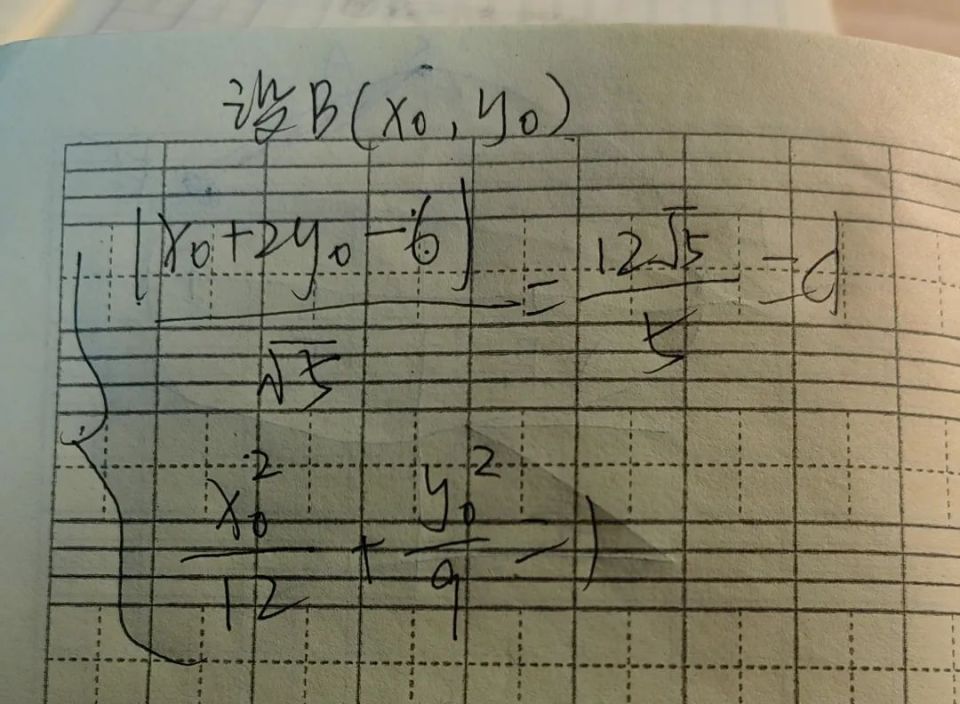 设B(x₀,y₀)
|x₀+2y₀-6|/√5 = 12√5/5 = d
x₀²/12 + y₀²/9 = 1